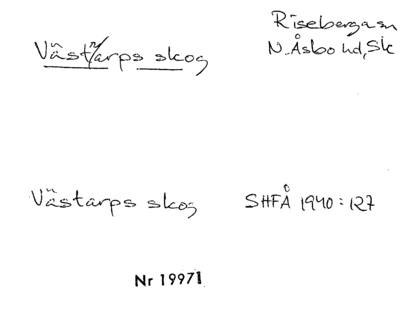 Riseberga sn
Västarps skog
N. Åsbo hd, Sk
Västarps skog SHFÅ 1940:127
Nr 19971